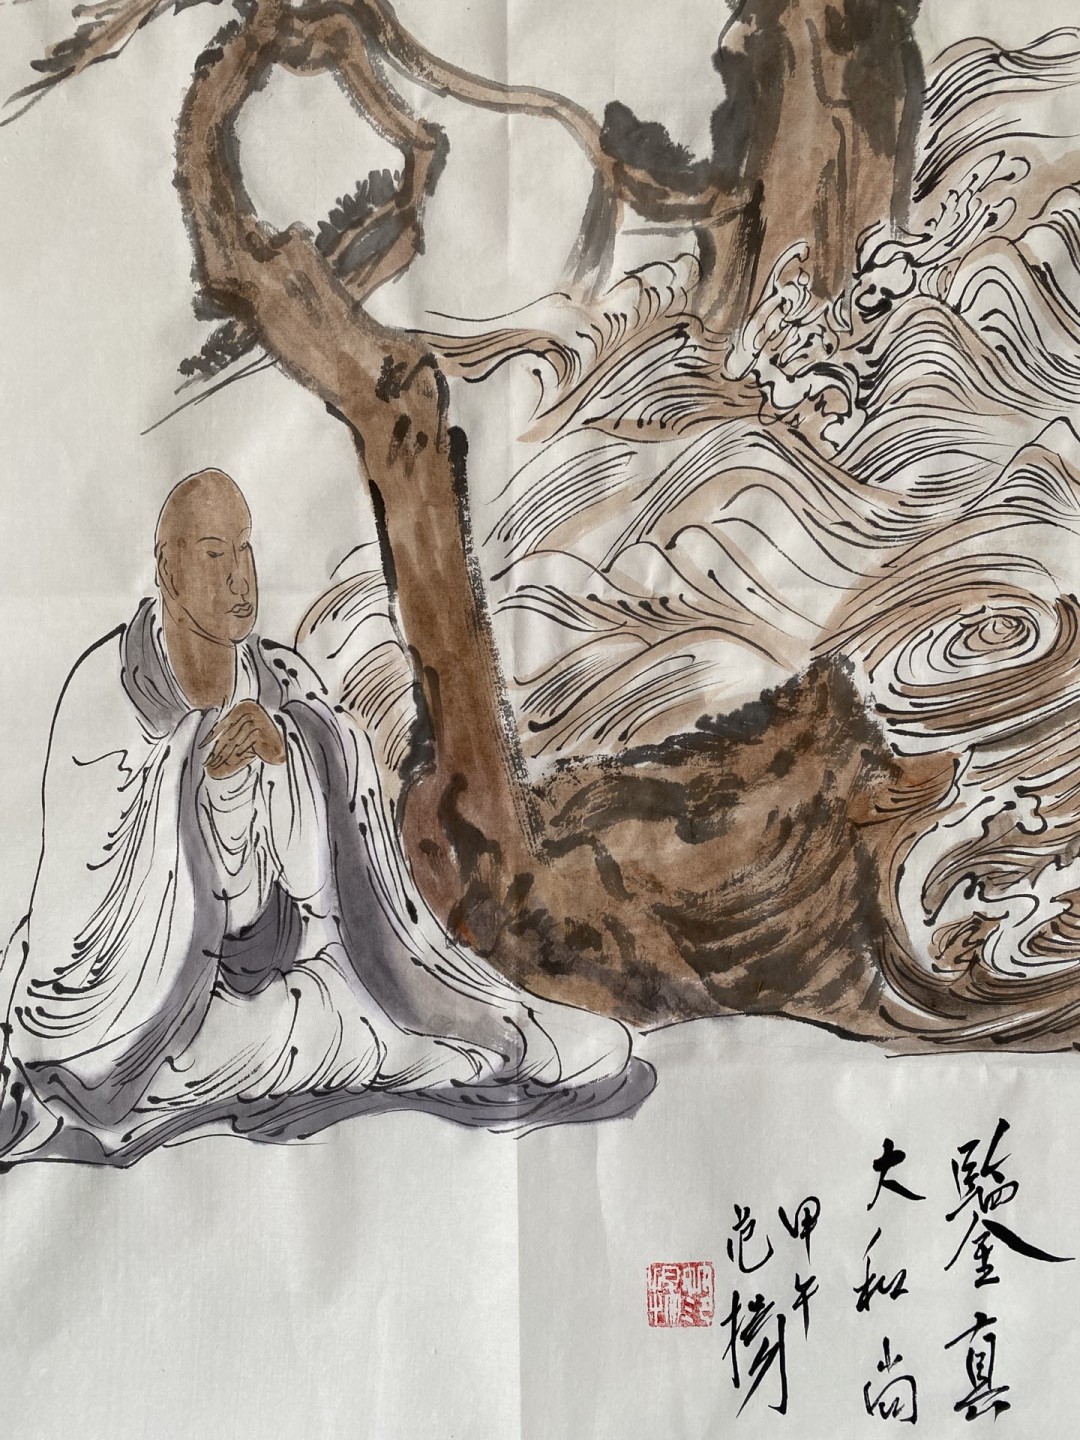 鑒真
大和尚
甲午
范